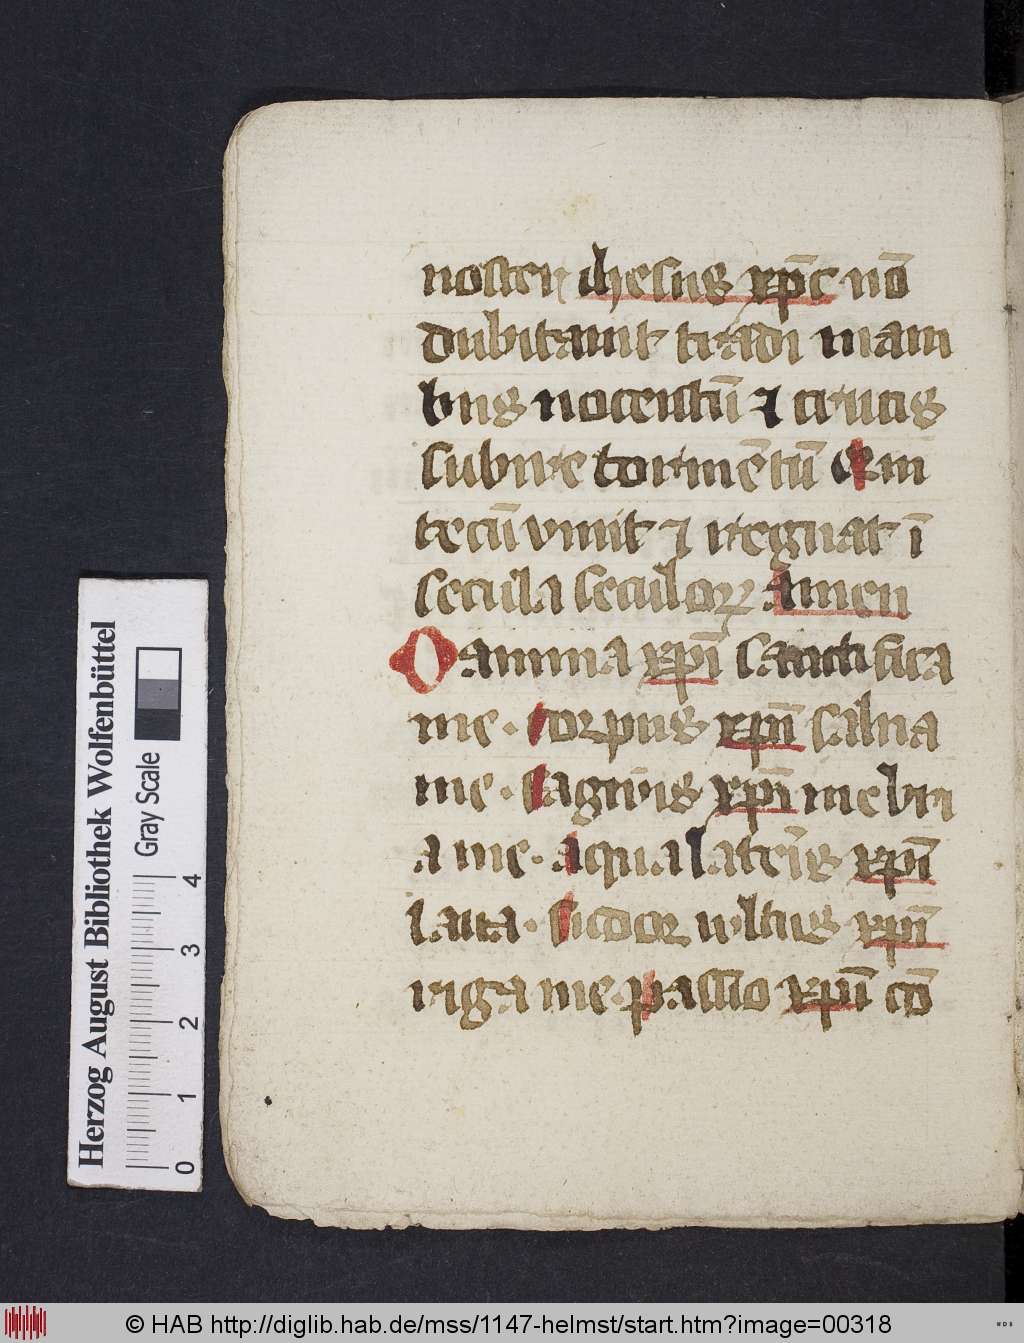 noster ihesus xp̄c nō
dubitauit tradi mani
bus nocentiū ⁊ crucis
subire tormētū Qui
tecū viuit ⁊ regnat ī
secula seculoꝝ Amen
O anima xp̄i sanctifica
me · Corpus xp̄i salua
me · Sagwis xp̄i inebri
a me · Aqua lateris xp̄i
laua · Sudor vultus xp̄i
riga me · Passio xp̄i cō
Herzog August Bibliothek Wolfenbüttel
Gray Scale
0 1 2 3 4
© HAB http://diglib.hab.de/mss/1147-helmst/start.htm?image=00318
WDB